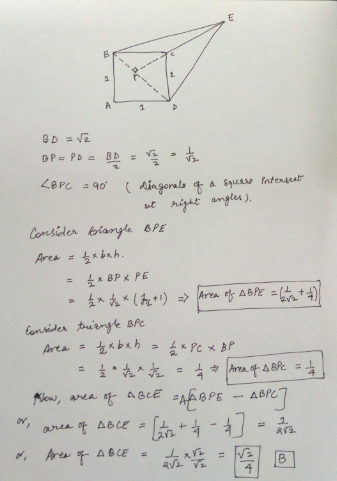 E
B
C
P
1
1
A
1
D
BD = √2
BP = PD = BD/2 = √2/2 = 1/√2
∠BPC = 90° ( Diagonals of a square intersect
at right angles).
Consider triangle BPE
Area = 1/2 × b × h.
= 1/2 × BP × PE
= 1/2 × 1/√2 × (1/√2 + 1) => Area of △BPE = (1/2√2 + 1/4)
Consider triangle BPC
Area = 1/2 × b × h = 1/2 × PC × BP
= 1/2 × 1/√2 × 1/√2 = 1/4 => Area of △BPC = 1/4
Now, area of △BCE = A[△BPE - △BPC]
or, area of △BCE = [1/2√2 + 1/4 - 1/4] = 1/2√2
or, Area of △BCE = 1/2√2 × √2/√2 = √2/4 B